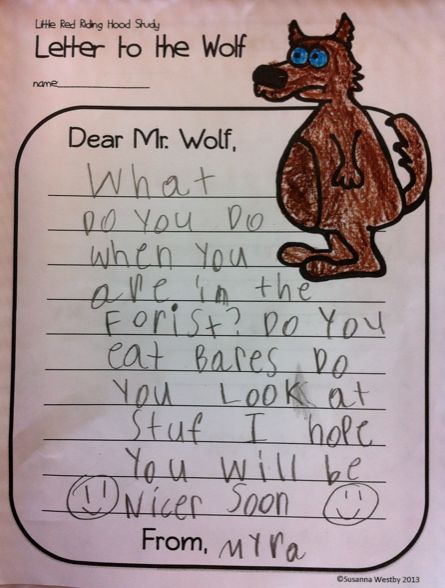 Little Red Riding Hood Study
Letter to the Wolf
name
Dear Mr. Wolf,
What
DO YOU DO
when YOU
are in the
Forist? DO YOU
eat Bares DO
YOU LOOK at
Stuf I hope
You will be
Nicer Soon
From, myra
©Susanna Westby 2013